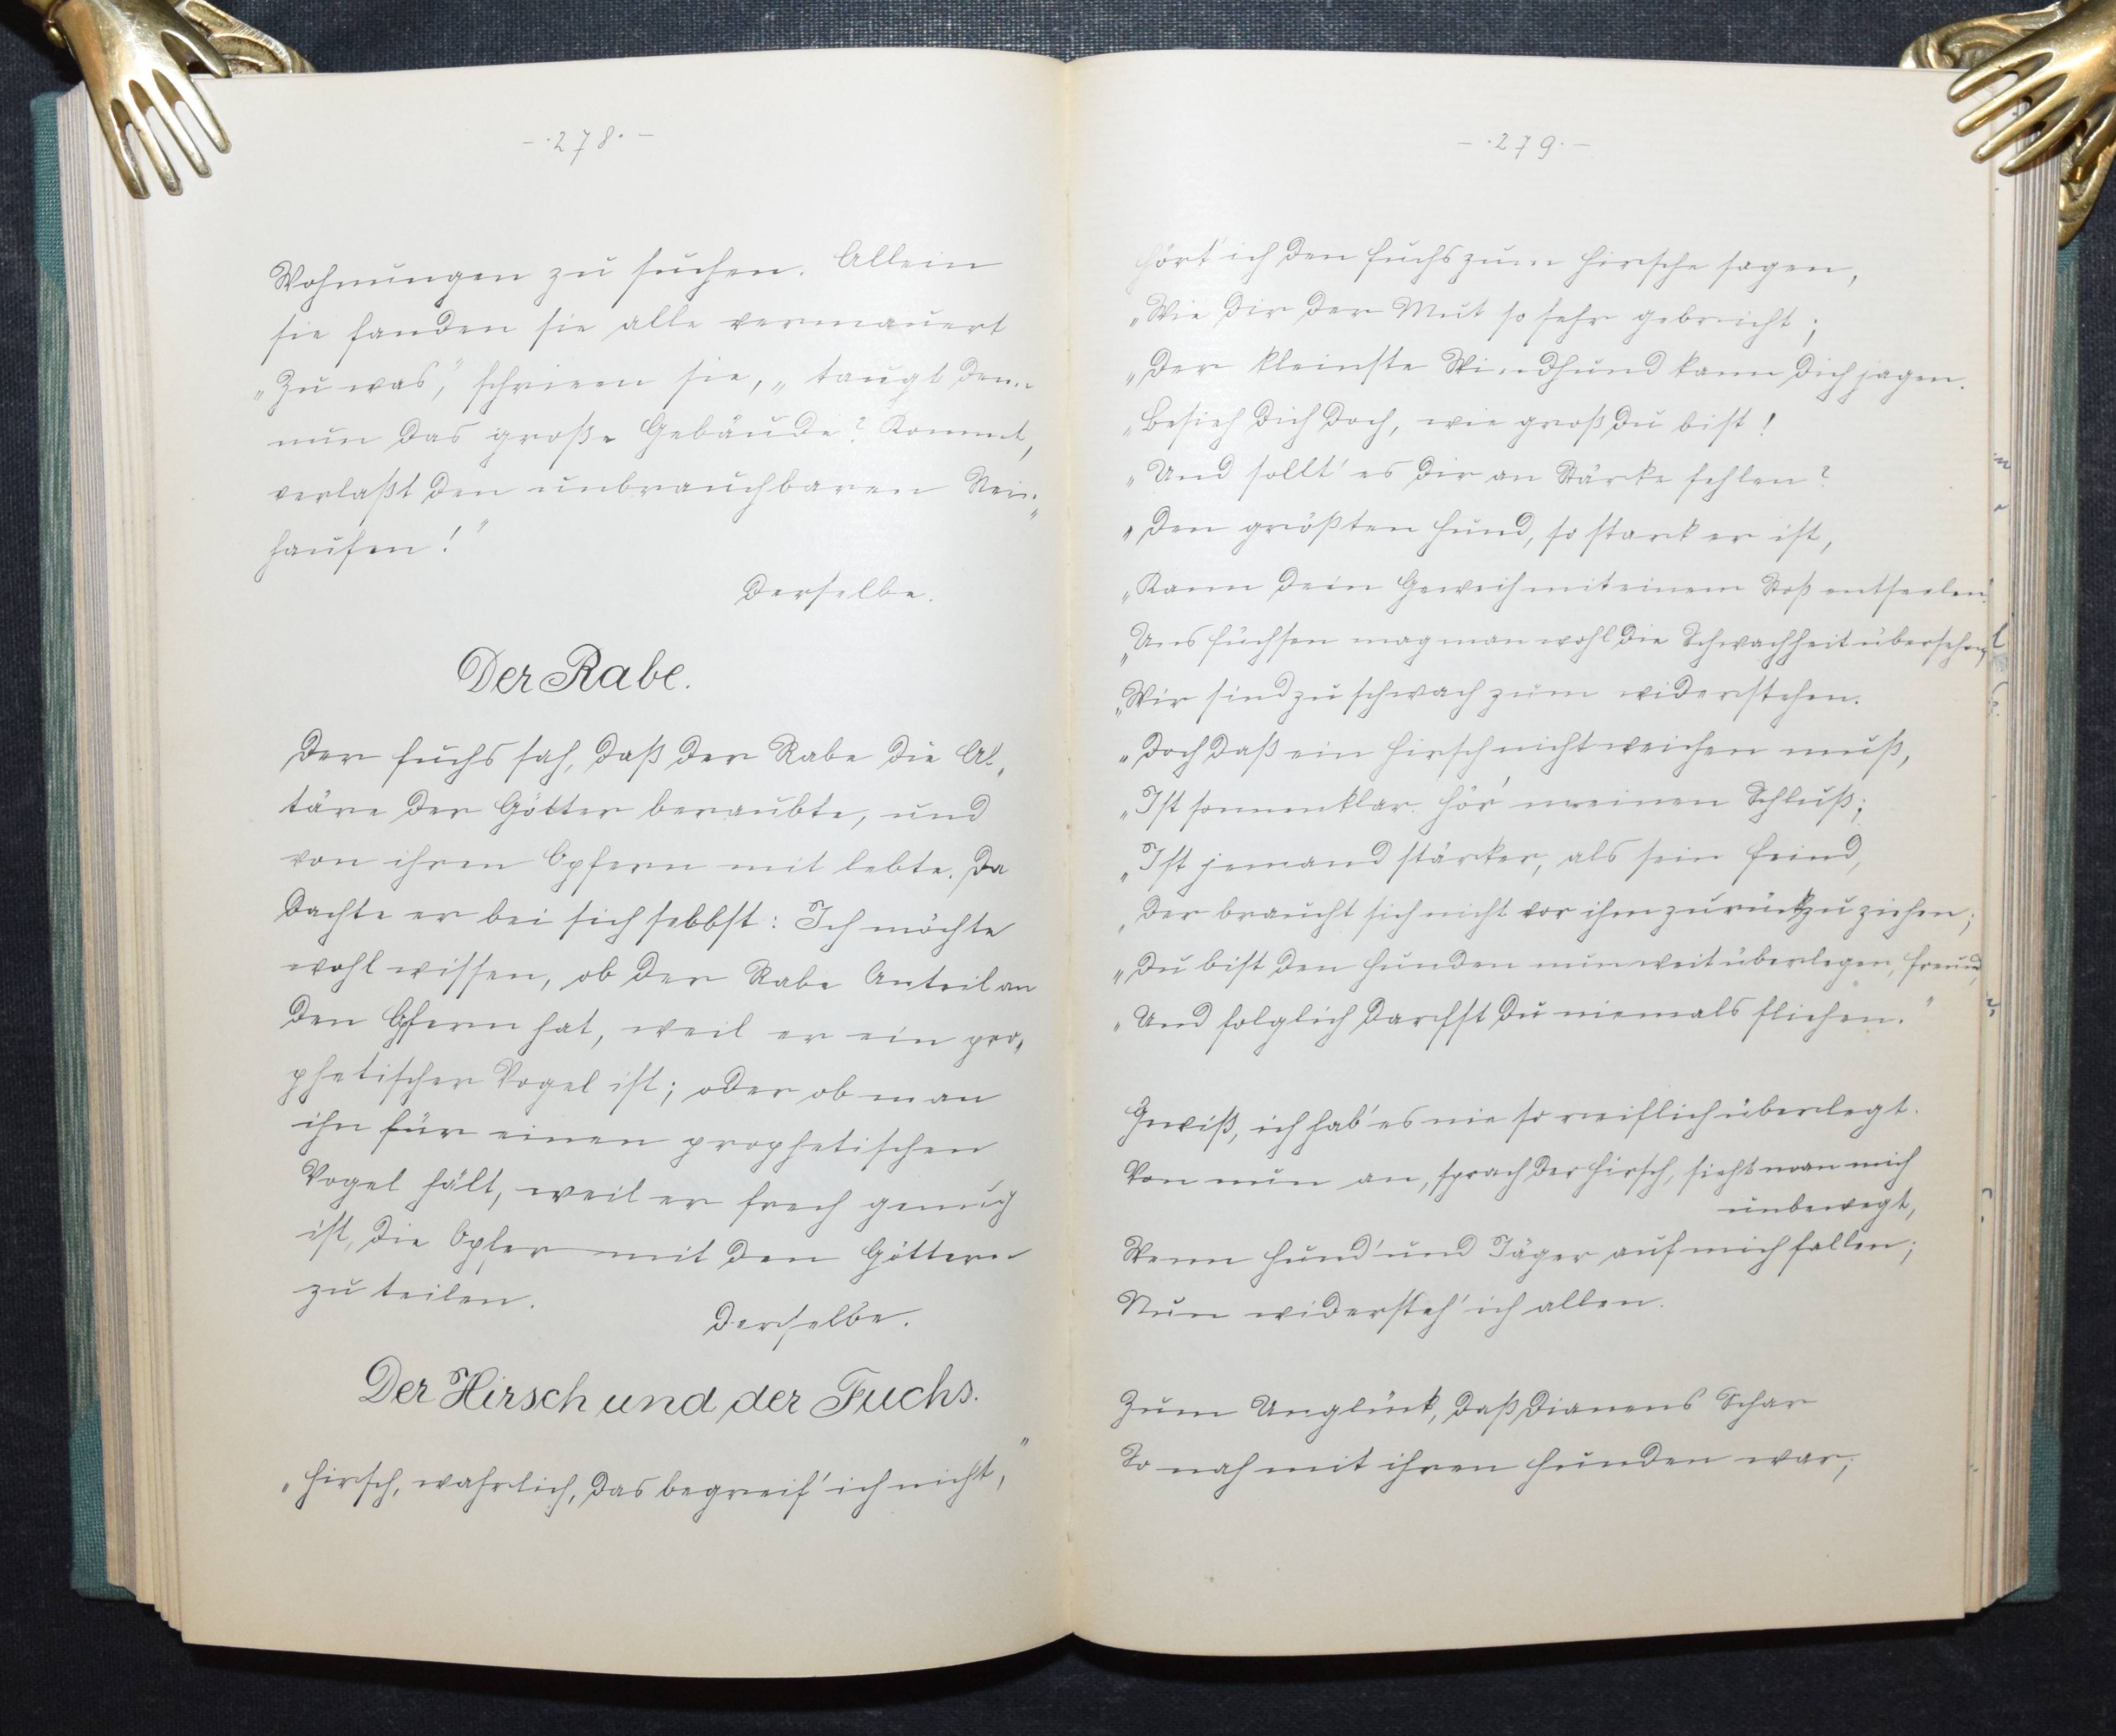 - ·278· -
Wohnungen zu suchen. Allein
sie fanden sie alle vermauert
„Zu was,“ schrieen sie, „taugt denn
nun das große Gebäude? Kommt,
verlaßt den unbrauchbaren Stein-
haufen!“
Derselbe.
Der Rabe.
Der Fuchs sah, daß der Rabe die Al-
täre der Götter beraubte, und
von ihren Opfern mit lebte. Da
dachte er bei sich selbst: Ich möchte
wohl wissen, ob der Rabe Anteil an
den Opfern hat, weil er ein pro-
phetischer Vogel ist; oder ob man
ihn für einen prophetischen
Vogel hält, weil er frech genug
ist, die Opfer mit den Göttern
zu teilen.
Derselbe.
Der Hirsch und der Fuchs.
„Hirsch, wahrlich, das begreif' ich nicht,“
- ·279· -
Hört' ich den Fuchs zum Hirsche sagen,
„Wie dir der Mut so sehr gebricht;
„Der kleinste Windhund kann dich jagen.
„Besieh dich doch, wie groß du bist!
„Und sollt' es dir an Stärke fehlen?
„Den größten Hund, so stark er ist,
„Kann dein Geweih mit einem Stoß entseelen.
„Uns Füchsen mag man wohl die Schwachheit übersehen;
„Wir sind zu schwach zum widerstehen.
„Doch daß ein Hirsch nicht weichen muß,
„Ist sonnenklar. Hör' meinen Schluß;
„Ist jemand stärker, als sein Feind,
„Der braucht sich nicht vor ihm zurückzuziehen;
„Du bist den Hunden nun weit überlegen, Freund,
„Und folglich darfst du niemals fliehen.“
Gewiß, ich hab' es nie so reiflich überlegt.
Von nun an, sprach der Hirsch, sieht man mich
unbewegt,
Wenn Hund' und Jäger auf mich fallen;
Nun widersteh' ich allen.
Zum Unglück, daß Dianens Schar
So nah mit ihren Hunden war;